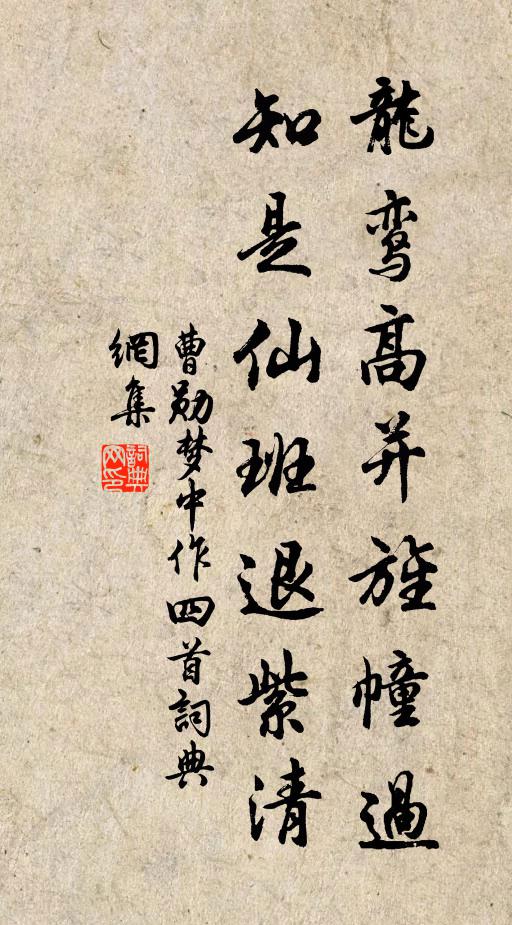 龍鸾高并旌幢過
知是仙班退紫清
曹勛梦中作四首詞典
網集
詞典
网印